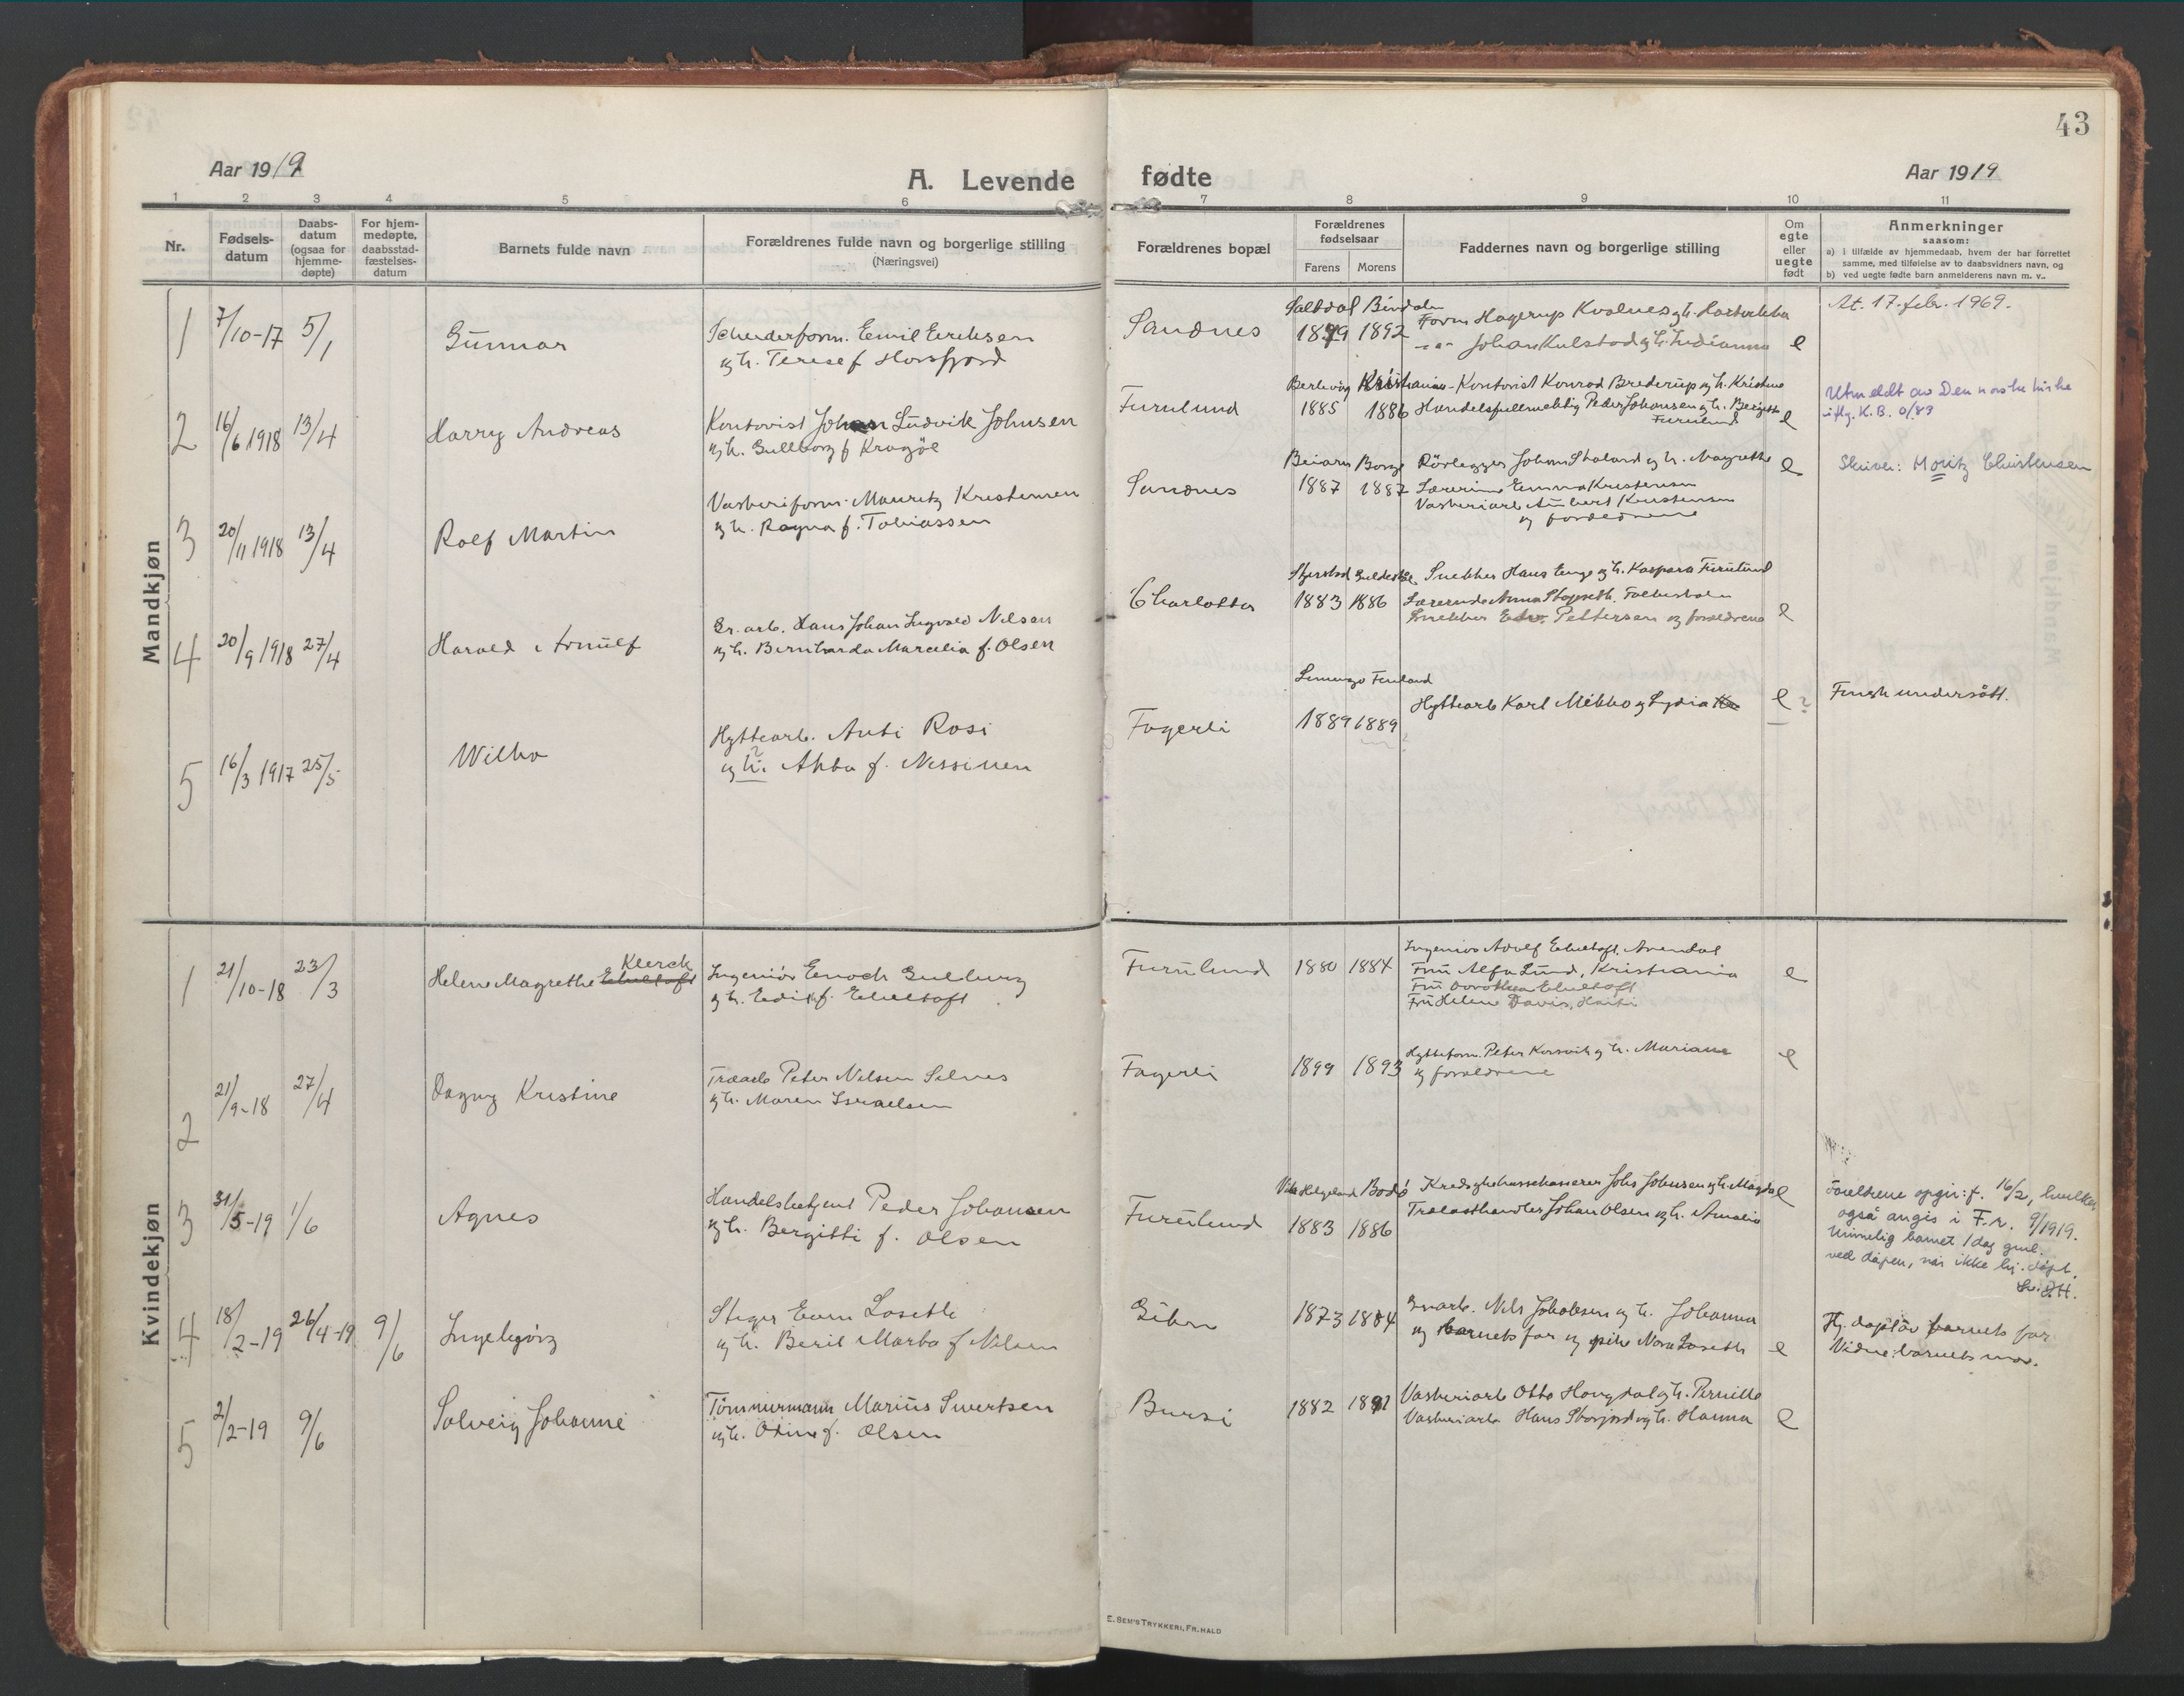 43
Aar 1919
A. Levende fødte
Aar 1919
1 2 3 4 5 6 7 8 9 10 11
Nr.
Fødsels-
datum
Daabs-
datum
(ogsaa for
hjemme-
døpte)
For hjem-
medøpte,
daabsstad-
fæstelses-
datum
Barnets fulde navn
Forældrenes fulde navn og borgerlige stilling
(Næringsvei)
Forældrenes bopæl
Forældrenes
fødselsaar
Farens Morens
Faddernes navn og borgerlige stilling
Om
egte
eller
uegte
født
Anmerkninger
saasom:
a) i tilfælde av hjemmedaab, hvem der har forrettet
samme, med tilføielse av to daabsvidners navn, og
b) ved uegte fødte barn anmelderens navn m. v..
Mandkjøn
1 7/10-17 5/1 Gunnar
Scheiderform. Emil Eriksen
og h. Terese f. Horsfjord
Sandnes
Saltdal Bindalen
1879 1892
Form Hagerup Kvalnes og h.
Johan Kulstad og h. Indianna
e
At. 17. febr. 1969.
2 16/6 1918 13/4 Harry Andreas
Kontorist Johan Ludvik Johnsen
og h. Gullborg f. Kragøe
Furulund
Berlevåg Kristiania
1885 1886
Kontorist Konrad Brederup og h. Kristine
Handelsfullmektig Peder Johansen og h. Bergitte
Furulund
e
Utmeldt av Den norske kirke
iflg. K.B. 0/83
3 20/11 1918 13/4 Rolf Martin
Vaskeriform. Mauritz Kristensen
og h. Ragna f. Tobiassen
Sandnes
Beiarn Borge
1887 1887
Rørlegger Johan Staland og h. Magrethe
Lærerinne Emma Kristensen
Vaskeriarb. Aubert Kristensen
og forældrene
e
Skriver: Moritz Christensen
4 20/9 1918 27/4 Harald Arnulf
Gr. arb. Hans Johan Ingvald Nilsen
og h. Bernharda Marcelia f. Olsen
Charlotta
1883 1886
Snekker Hans Enge og h. Kaspara Furulund
Snekker Edv. Pettersen og forældrene
e
5 16/3 1917 25/5 Wilho
Hyttearb. Anti Rosi
og h. ? Ahba f. Nissinen
Fagerli
Finland
1889 1889
Hyttearb Karl Mikko og Lydia
e ?
Finsk undersått.
Kvindekjøn
1 21/10-18 23/3 Helene Magrethe Klerck
Ingeniør Enoch Gulberg
og h. Edit f. Ebeltoft
Furulund 1880 1884
Ingeniør Adolf Ebeltoft, Arendal
Fru Alfa Lund, Kristiania
Fru Dorothea Ebeltoft
Fru Helene Davis, Haiti
e
2 21/9-18 27/4 Dagny Kristine
Træarb Peter Nilsen Selnes
og h. Maren Israelsen
Fagerli 1899 1893
Hytteform. Peter Korsvik og h. Mariane
og forældrene
e
3 31/5-19 1/6 Agnes
Handelsbetjent Peder Johansen
og h. Bergitti f. Olsen
Furulund
Helgeland Bodø
1883 1886
Kredssykekassekasserer Johs Johnsen og h. Magda
Trælasthandler Johan Olsen og h. Amalie
e
Foreldrene opgir: f. 16/2, hvilket
også angis i F.r. 9/1919.
Urimelig barnet 1 dag gml.
ved dåpen, når ikke hj. døpt.
4 18/2-19 26/4-19 9/6 Ingebjørg
Steger Even Loseth
og h. Beril Marta f. Nilsen
Giken 1873 1884
Gruarb. Nils Jakobsen og h. Johanna
og barnets far og pike Nora Loseth
e
Hj. døpt av barnets far
Vidne: barnets mor.
5 2/2-19 9/6 Solveig Johanne
Tømmermann Marius Sivertsen
og h. Odine f. Olsen
Bursi 1882 1892
Vaskeriarb Otto Haugdal og h. Pernille
Vaskeriarb Hans Storjord og h. Hanna
e
E. SEM'S TRYKKERI, FR.HALD